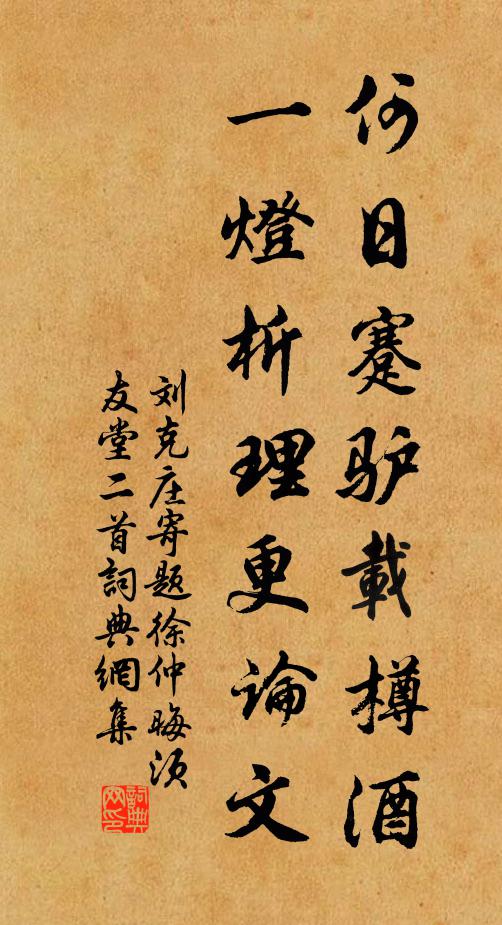 何日蹇驴載樽酒
一燈析理更論文
刘克庄寄题徐仲晦须
友堂二首詞典網集
詞典
网印